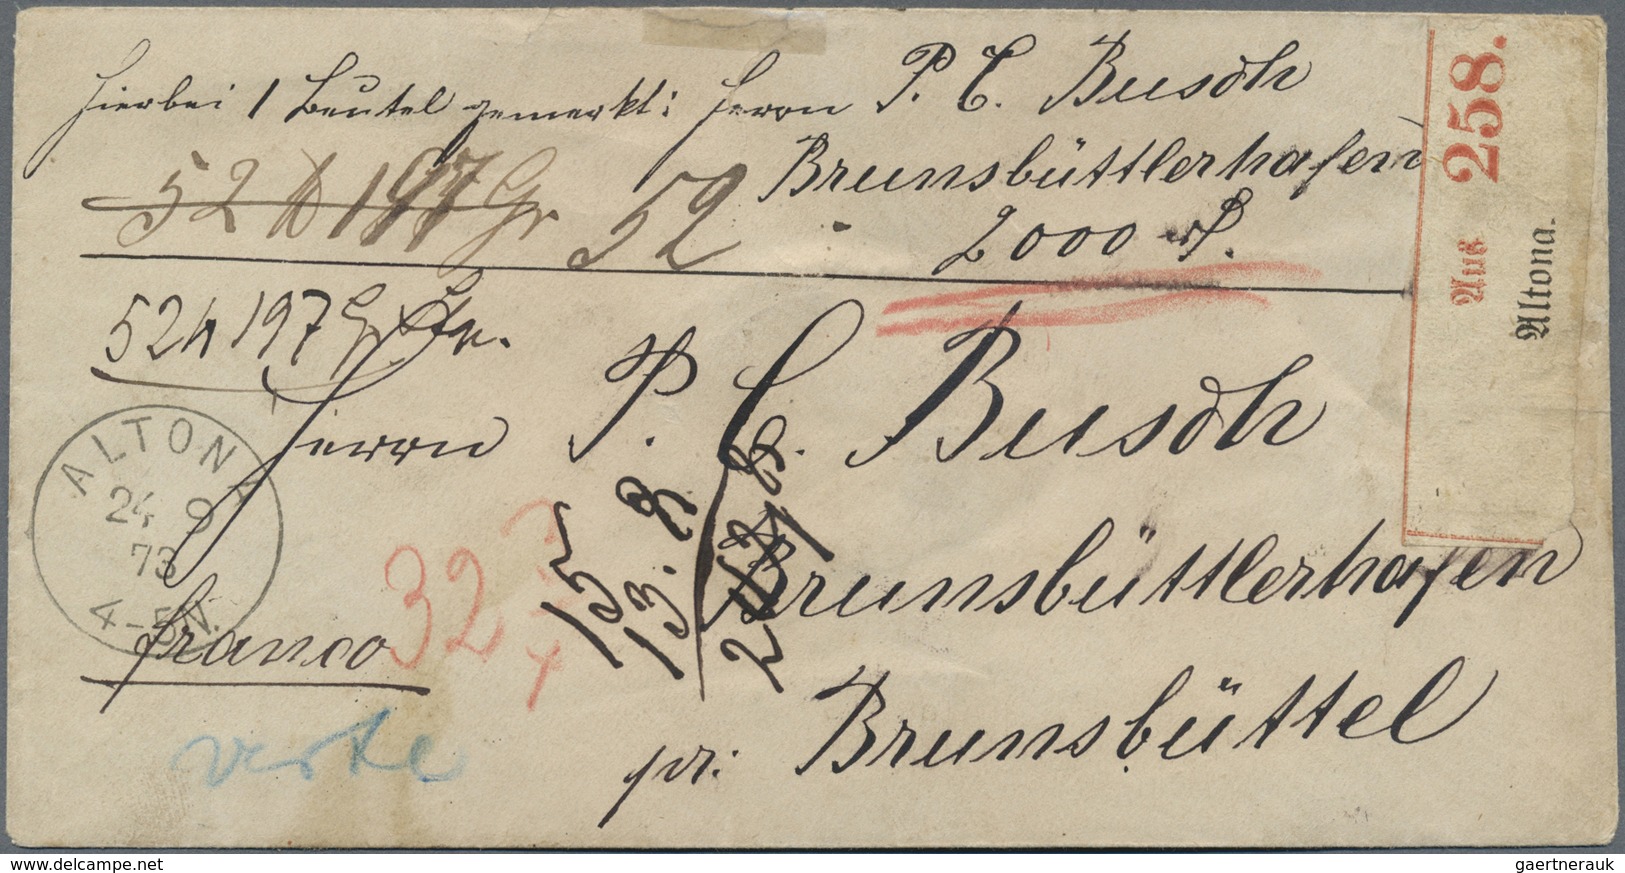 Hierbei 1 Beutel gemerkt: Herrn P. C. Busch
Brunsbüttlerhafen
52 ℔ 197 Gr 52
2000 ₰.
52 ℔ 197 Gr
Herrn P. C. Busch
Brunsbüttlerhafen
pr: Brunsbüttel
franco
ALTONA
24 9
73
4-5N.
32
135
13.8
verte
258.
Aus
Altona.
www.delcampe.net
gaertnerauk